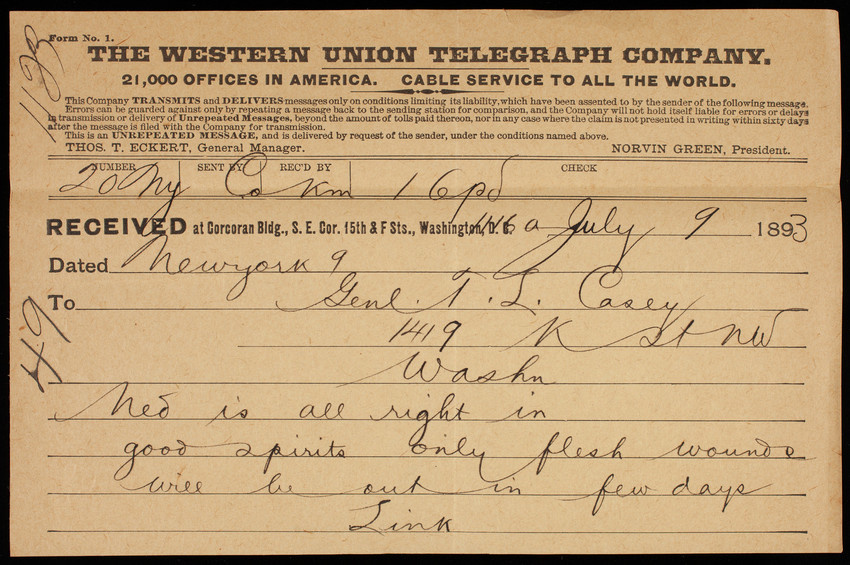 1123
Form No. 1.
THE WESTERN UNION TELEGRAPH COMPANY.
21,000 OFFICES IN AMERICA. CABLE SERVICE TO ALL THE WORLD.
This Company TRANSMITS and DELIVERS messages only on conditions limiting its liability, which have been assented to by the sender of the following message.
Errors can be guarded against only by repeating a message back to the sending station for comparison, and the Company will not hold itself liable for errors or delays
in transmission or delivery of Unrepeated Messages, beyond the amount of tolls paid thereon, nor in any case where the claim is not presented in writing within sixty days
after the message is filed with the Company for transmission.
This is an UNREPEATED MESSAGE, and is delivered by request of the sender, under the conditions named above.
THOS. T. ECKERT, General Manager. NORVIN GREEN, President.
NUMBER SENT BY REC'D BY CHECK
20 Ny Co Km 16 pd
RECEIVED at Corcoran Bldg., S. E. Cor. 15th & F Sts., Washington, D. C. a July 9 1893
Dated Newyork 9
To Genl. T. L. Casey
1419 K St NW
Washn
49
Ned is all right in
good spirits only flesh wounds
will be out in few days
Link